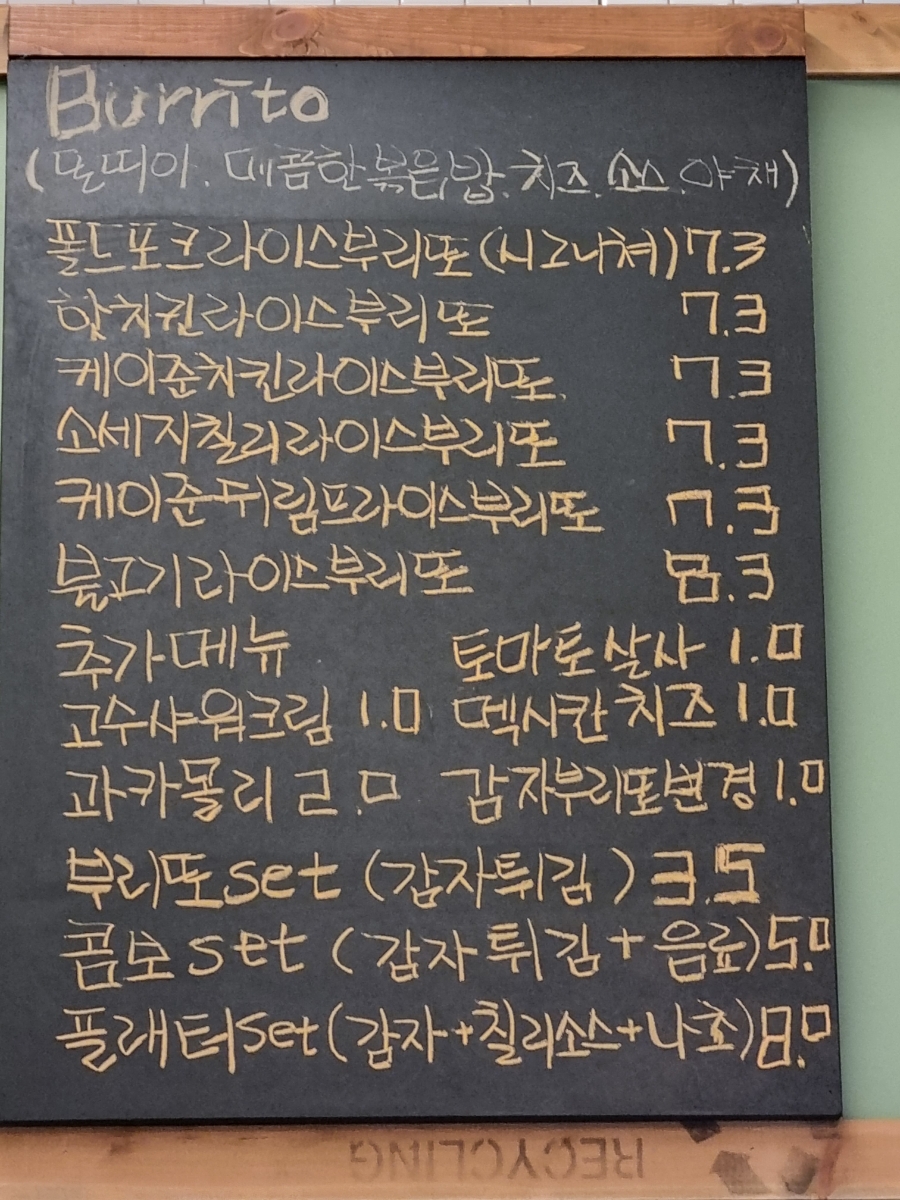 Burrito
(또띠아. 매콤한볶음밥. 치즈. 소스. 야채)
풀드포크라이스부리또(시그니쳐) 7.3
핫치킨라이스부리또 7.3
케이준치킨라이스부리또 7.3
소세지칠리라이스부리또 7.3
케이준쉬림프라이스부리또 7.3
불고기라이스부리또 8.3
추가메뉴 토마토살사 1.0
고수샤워크림 1.0 멕시칸치즈 1.0
과카몰리 2.0 감자부리또변경 1.0
부리또set (감자튀김) 3.5
콤보set (감자튀김+음료) 5.0
플래터set(감자+칠리소스+나쵸) 8.0
RECYCLING